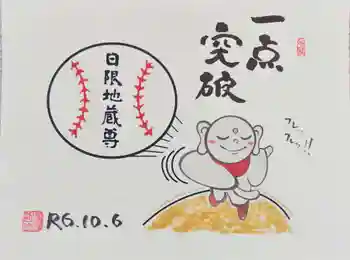 一点
突破
日限地蔵尊
フレー
フレッ!!
R6.10.6